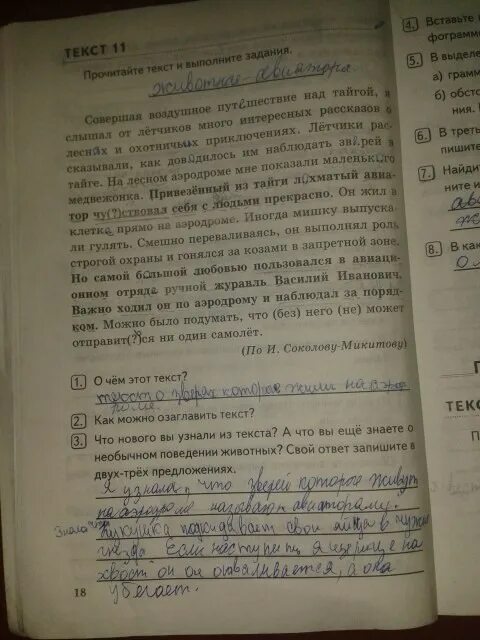 ТЕКСТ 11
Прочитайте текст и выполните задания.
животные-авиаторы.
Совершая воздушное путешествие над тайгой, я
слышал от лётчиков много интересных рассказов о
лесных и охотничьих приключениях. Лётчики рас-
сказывали, как доводилось им наблюдать зверей в
тайге. На лесном аэродроме мне показали маленького
медвежонка. Привезённый из тайги лохматый авиа-
тор чу(?)ствовал себя с людьми прекрасно. Он жил в
клетке прямо на аэродроме. Иногда мишку выпуска-
ли гулять. Смешно переваливаясь, он выполнял роль
строгой охраны и гонялся за козами в запретной зоне.
Но самой большой любовью пользовался в авиаци-
онном отряде ручной журавль Василий Иванович.
Важно ходил он по аэродрому и наблюдал за поряд-
ком. Можно было подумать, что (без) него (не) может
отправит(?)ся ни один самолёт.
(По И. Соколову-Микитову)
1. О чём этот текст?
текст о зверях которые жили на аэрод
роме.
2. Как можно озаглавить текст?
3. Что нового вы узнали из текста? А что вы ещё знаете о
необычном поведении животных? Свой ответ запишите в
двух-трёх предложениях.
Я узнала, что зверей которые живут
на аэродроме называют авиаторами.
Знала что
Кукушка подкладывает свои яйца в чужие
гнёзда. Если наступить ящерице на
хвост он отваливается, а она
убегает.
18
4. Вставьте
фограмм
5. В выделе
а) грамм
б) обсто
ния.
6. В треть
пишите
7. Найди
ните и
8. В как
ТЕКС